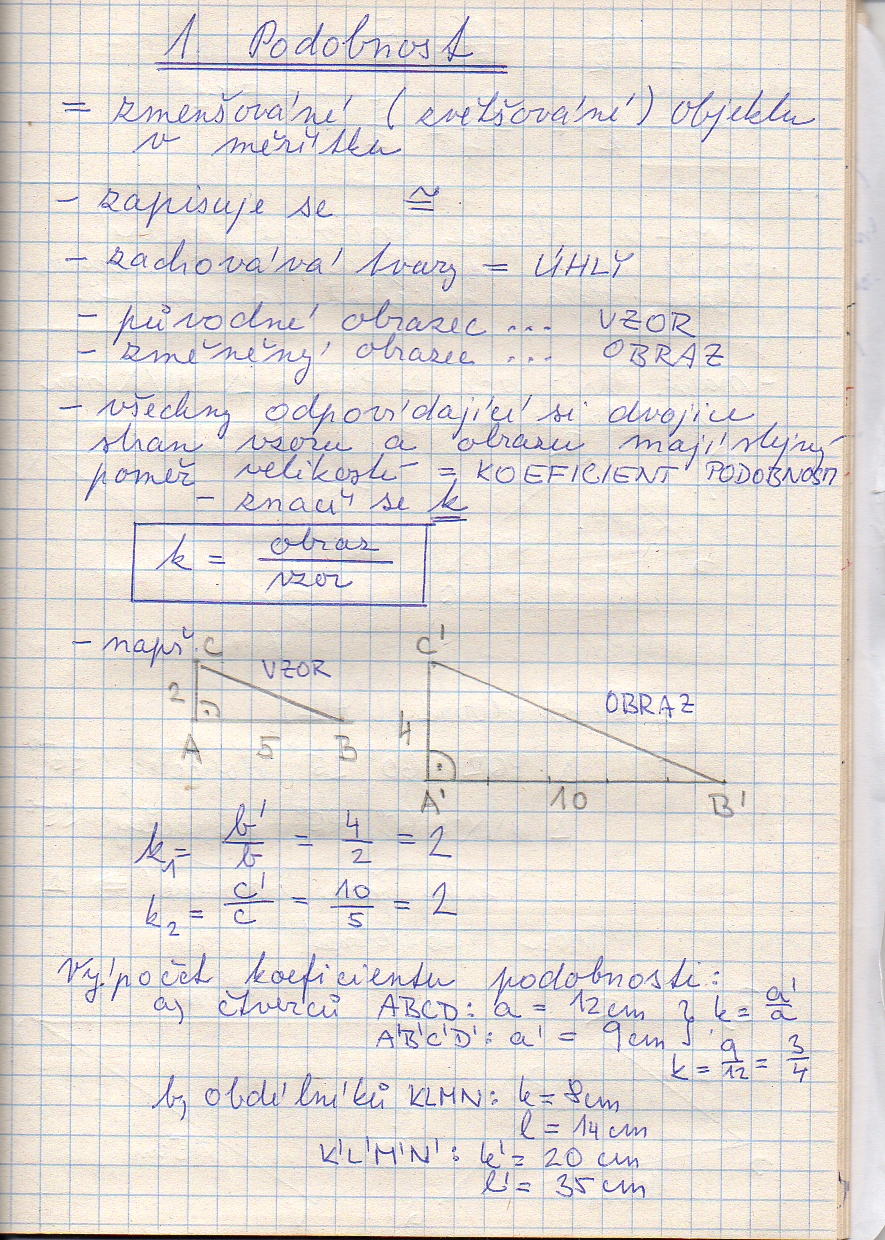 1. Podobnost
= zmenšování (zvětšování) objektu
v měřítku
- zapisuje se ≅
- zachovává tvary = ÚHLY
- původní obrazec ... VZOR
- změněný obrazec ... OBRAZ
- všechny odpovídající si dvojice
stran vzoru a obrazu mají stejný
poměr velikostí = KOEFICIENT PODOBNOSTI
- značí se k
k = obraz / vzor
- např.
C VZOR C'
2 OBRAZ
4
A 5 B
A' 10 B'
k₁ = b'/b = 4/2 = 2
k₂ = c'/c = 10/5 = 2
Výpočet koeficientu podobnosti:
a) čtverců ABCD: a = 12 cm } k = a'/a
A'B'C'D': a' = 9 cm
k = 9/12 = 3/4
b) obdélníků KLMN: k = 8 cm
l = 14 cm
K'L'M'N': k' = 20 cm
l' = 35 cm